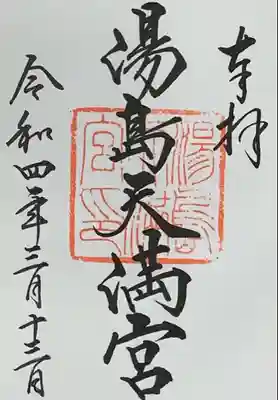 奉拝
湯島天満宮
令和四年三月十三日
湯島天満宮印